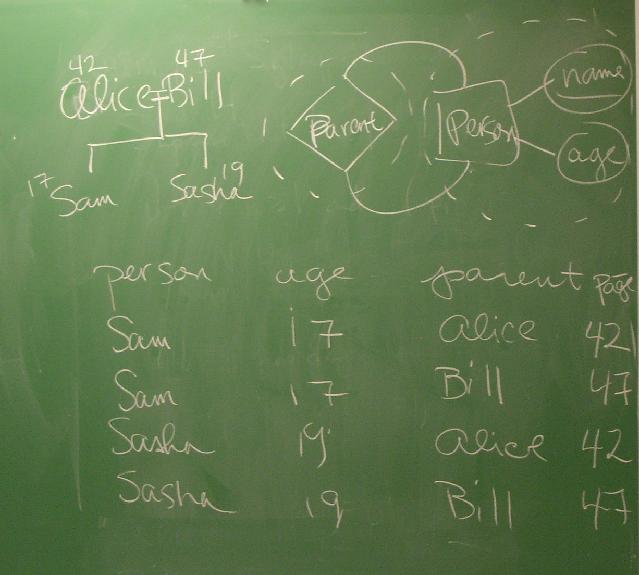 42 47
Alice Bill
17 Sam Sasha 19
Parent Person name
age
person age parent page
Sam 17 Alice 42
Sam 17 Bill 47
Sasha 19 Alice 42
Sasha 19 Bill 47